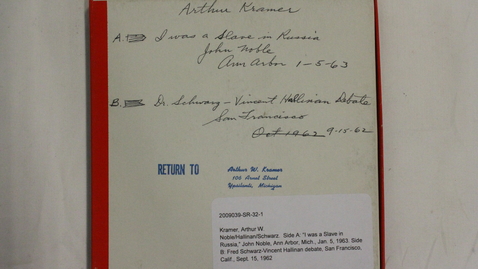 Arthur Kramer
A. I was a Slave in Russia
John Noble
Ann Arbor 1-5-63
B. Dr. Schwarz - Vincent Hallinan Debate
San Francisco
Oct 1962 9-15-62
RETURN TO
Arthur W. Kramer
Street
Ypsilanti, Michigan
2009039-SR-32-1
Kramer, Arthur W
Noble/Hallinan/Schwarz. Side A: "I was a Slave in
Russia," John Noble, Ann Arbor, Mich., Jan. 5, 1963. Side
B: Fred Schwarz-Vincent Hallinan debate, San Francisco,
Calif., Sept. 15, 1962